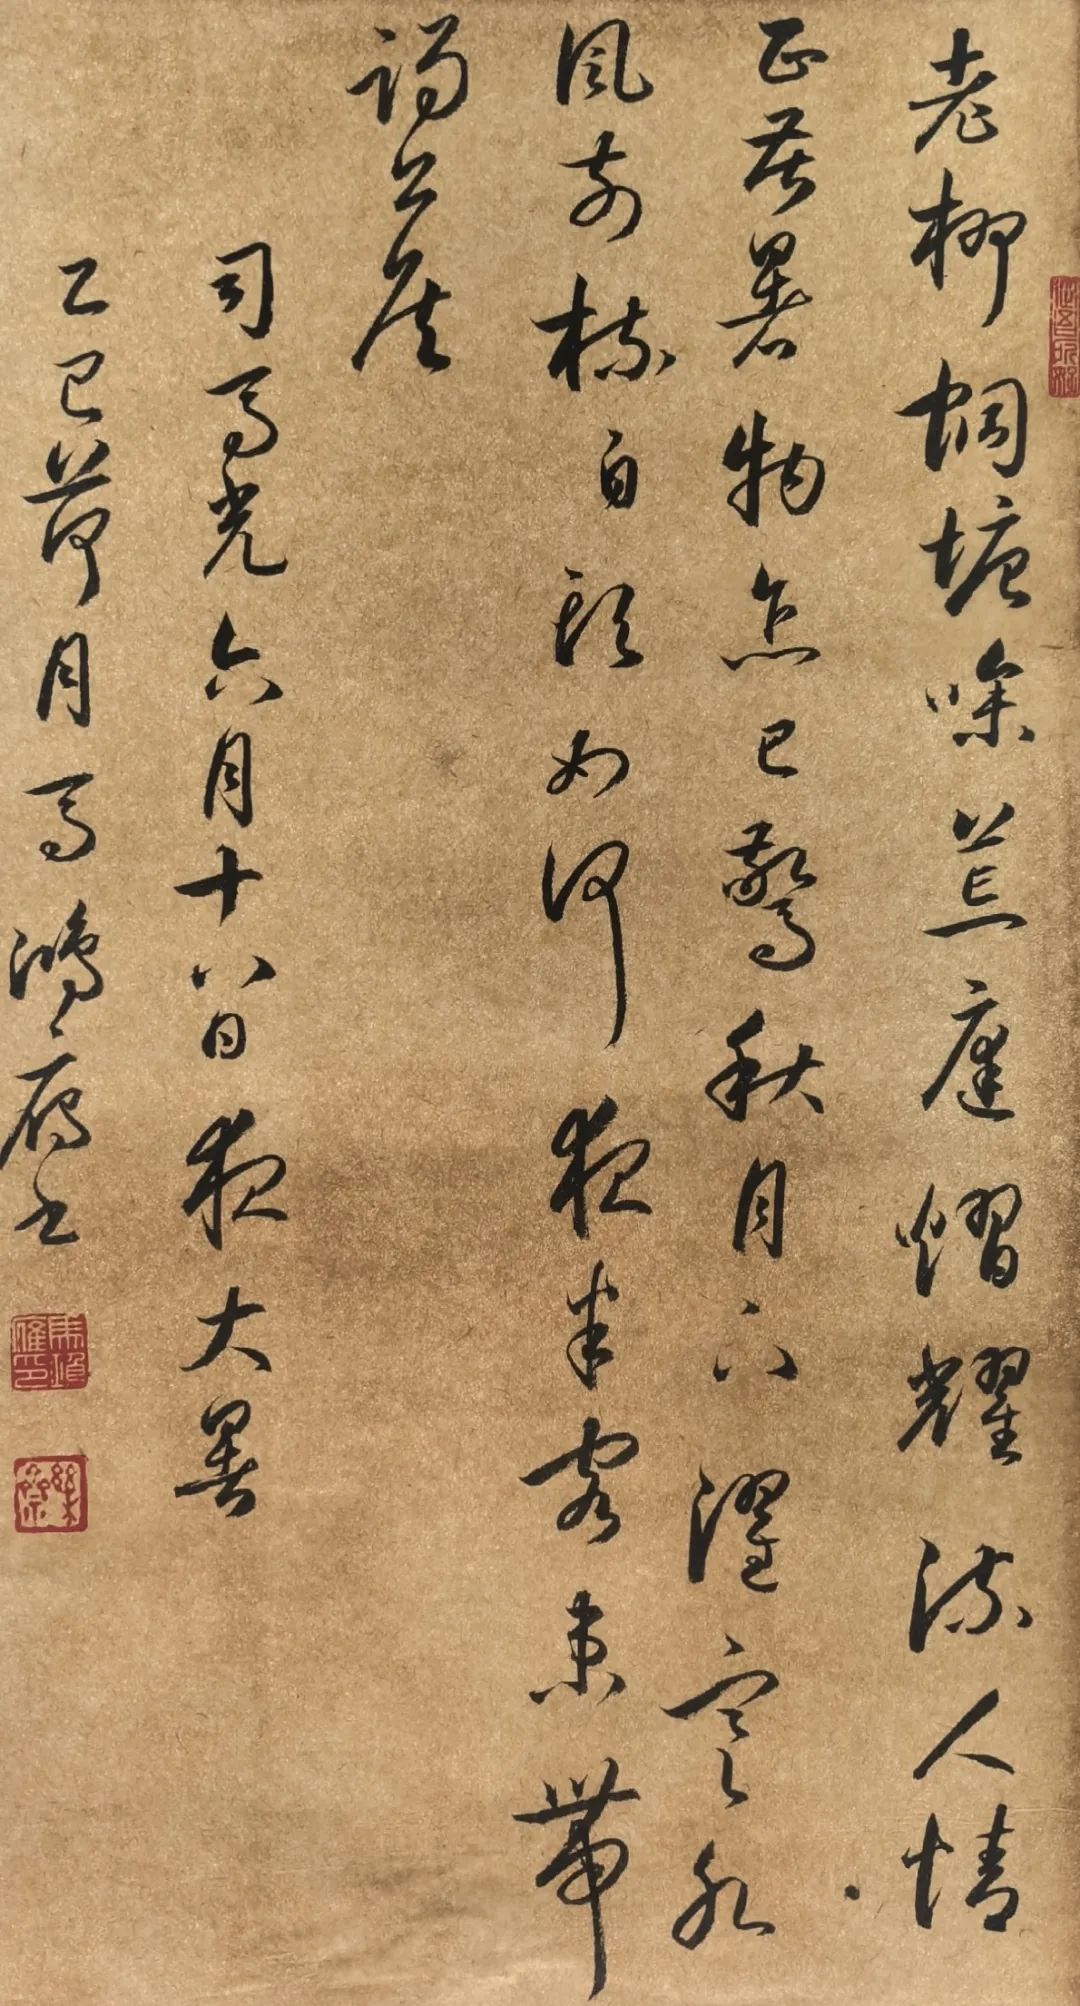 老柳蜩螗噪荒庭熠耀流人情
正苦暑物怎已驚秋月下濯寒水
風前梳白頭如何夜半客束帶
謁公侯
司馬光六月十八日夜大暑
乙巳荷月馬鴻雁書